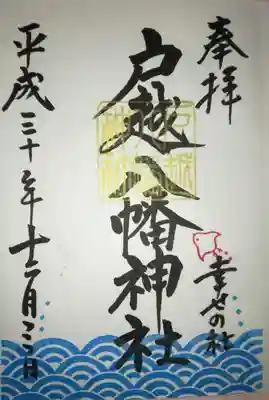 奉拝
幸せの杜
戸越八幡神社
平成三十年十二月三日